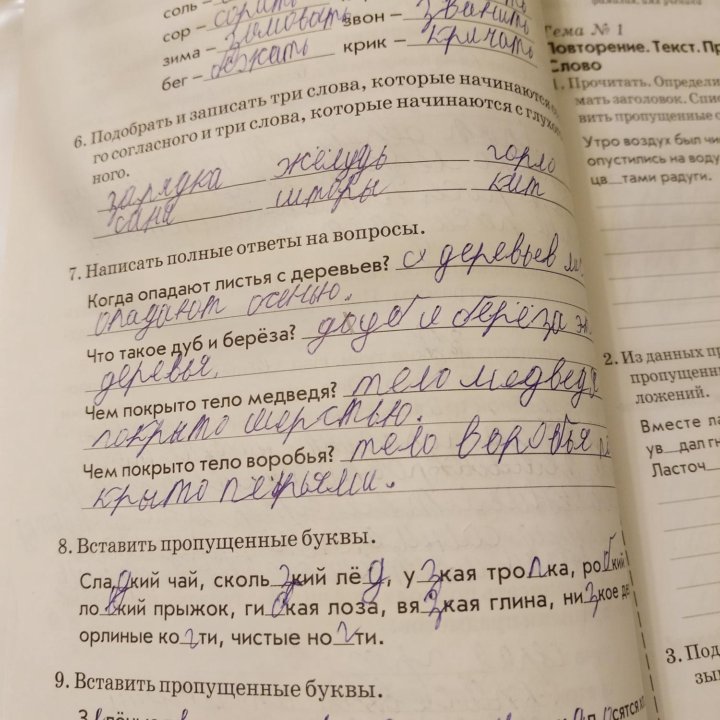 соль – солить
сор – сорить
зима – зимовать
звон – звонить
бег – бежать
крик – кричать
6. Подобрать и записать три слова, которые начинаются
го согласного и три слова, которые начинаются с глухо
ного.
зарядка желудь горло
сани шторы кит
7. Написать полные ответы на вопросы.
Когда опадают листья с деревьев? с деревьев ли
опадают осенью.
Что такое дуб и берёза? дуб и берёза э
деревья.
Чем покрыто тело медведя? тело медведя
покрыто шерстью.
Чем покрыто тело воробья? тело воробья
крыто перьями.
8. Вставить пропущенные буквы.
Сладкий чай, скользкий лёд, узкая тропка, робкий
ловкий прыжок, гибкая лоза, вязкая глина, низкое де
орлиные когти, чистые ногти.
9. Вставить пропущенные буквы.
Тема № 1
Повторение. Текст. Пр
Слово
1. Прочитать. Определи
мать заголовок. Спис
вить пропущенные
Утро воздух был чи
опустились на воду
цв__тами радуги.
2. Из данных пр
пропущенн
ложений.
Вместе ла
ув__дал гн
Ласточ
3. Под
зы